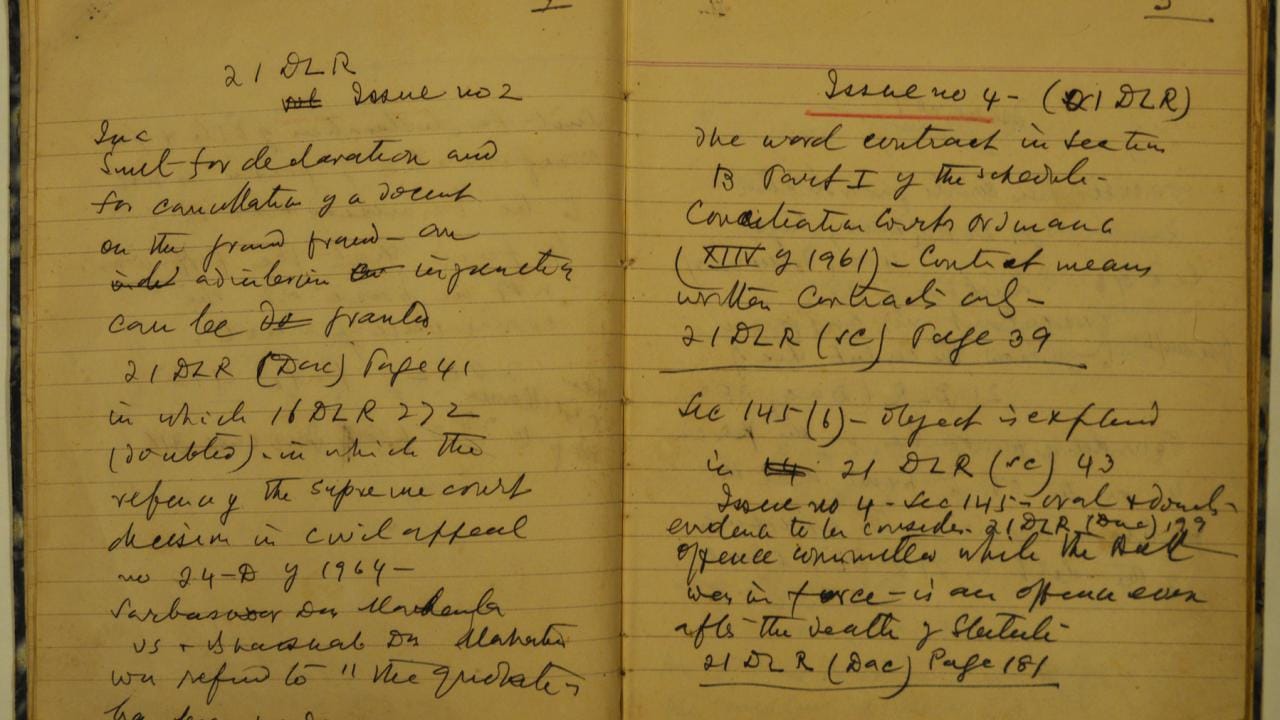 21 DLR
Issue no 2
Suit for declaration and
for cancellation of a
on the ground fraud - an
ad interim injunction
can be granted
21 DLR (Dac) Page 41
in which 16 DLR 272
(doubted) - in which the
the supreme court
decision in civil appeal
no 24-D of 1964 -
Das
vs Das
was to " the
3
Issue no 4 - (21 DLR)
The word contract in section
B Part I of the schedule -
Conciliation Courts Ordinance
(XIIV of 1961) - Contract means
written contracts only -
21 DLR (SC) Page 39
Sec 145 (6) - object is explained
in 21 DLR (SC) 43
Issue no 4 - Sec 145 - oral &
evidence to be consider. 21 DLR (Dac) 199
offence committed while the Act
was in force - is an offence even
after the death of Statute
21 DLR (Dac) Page 181